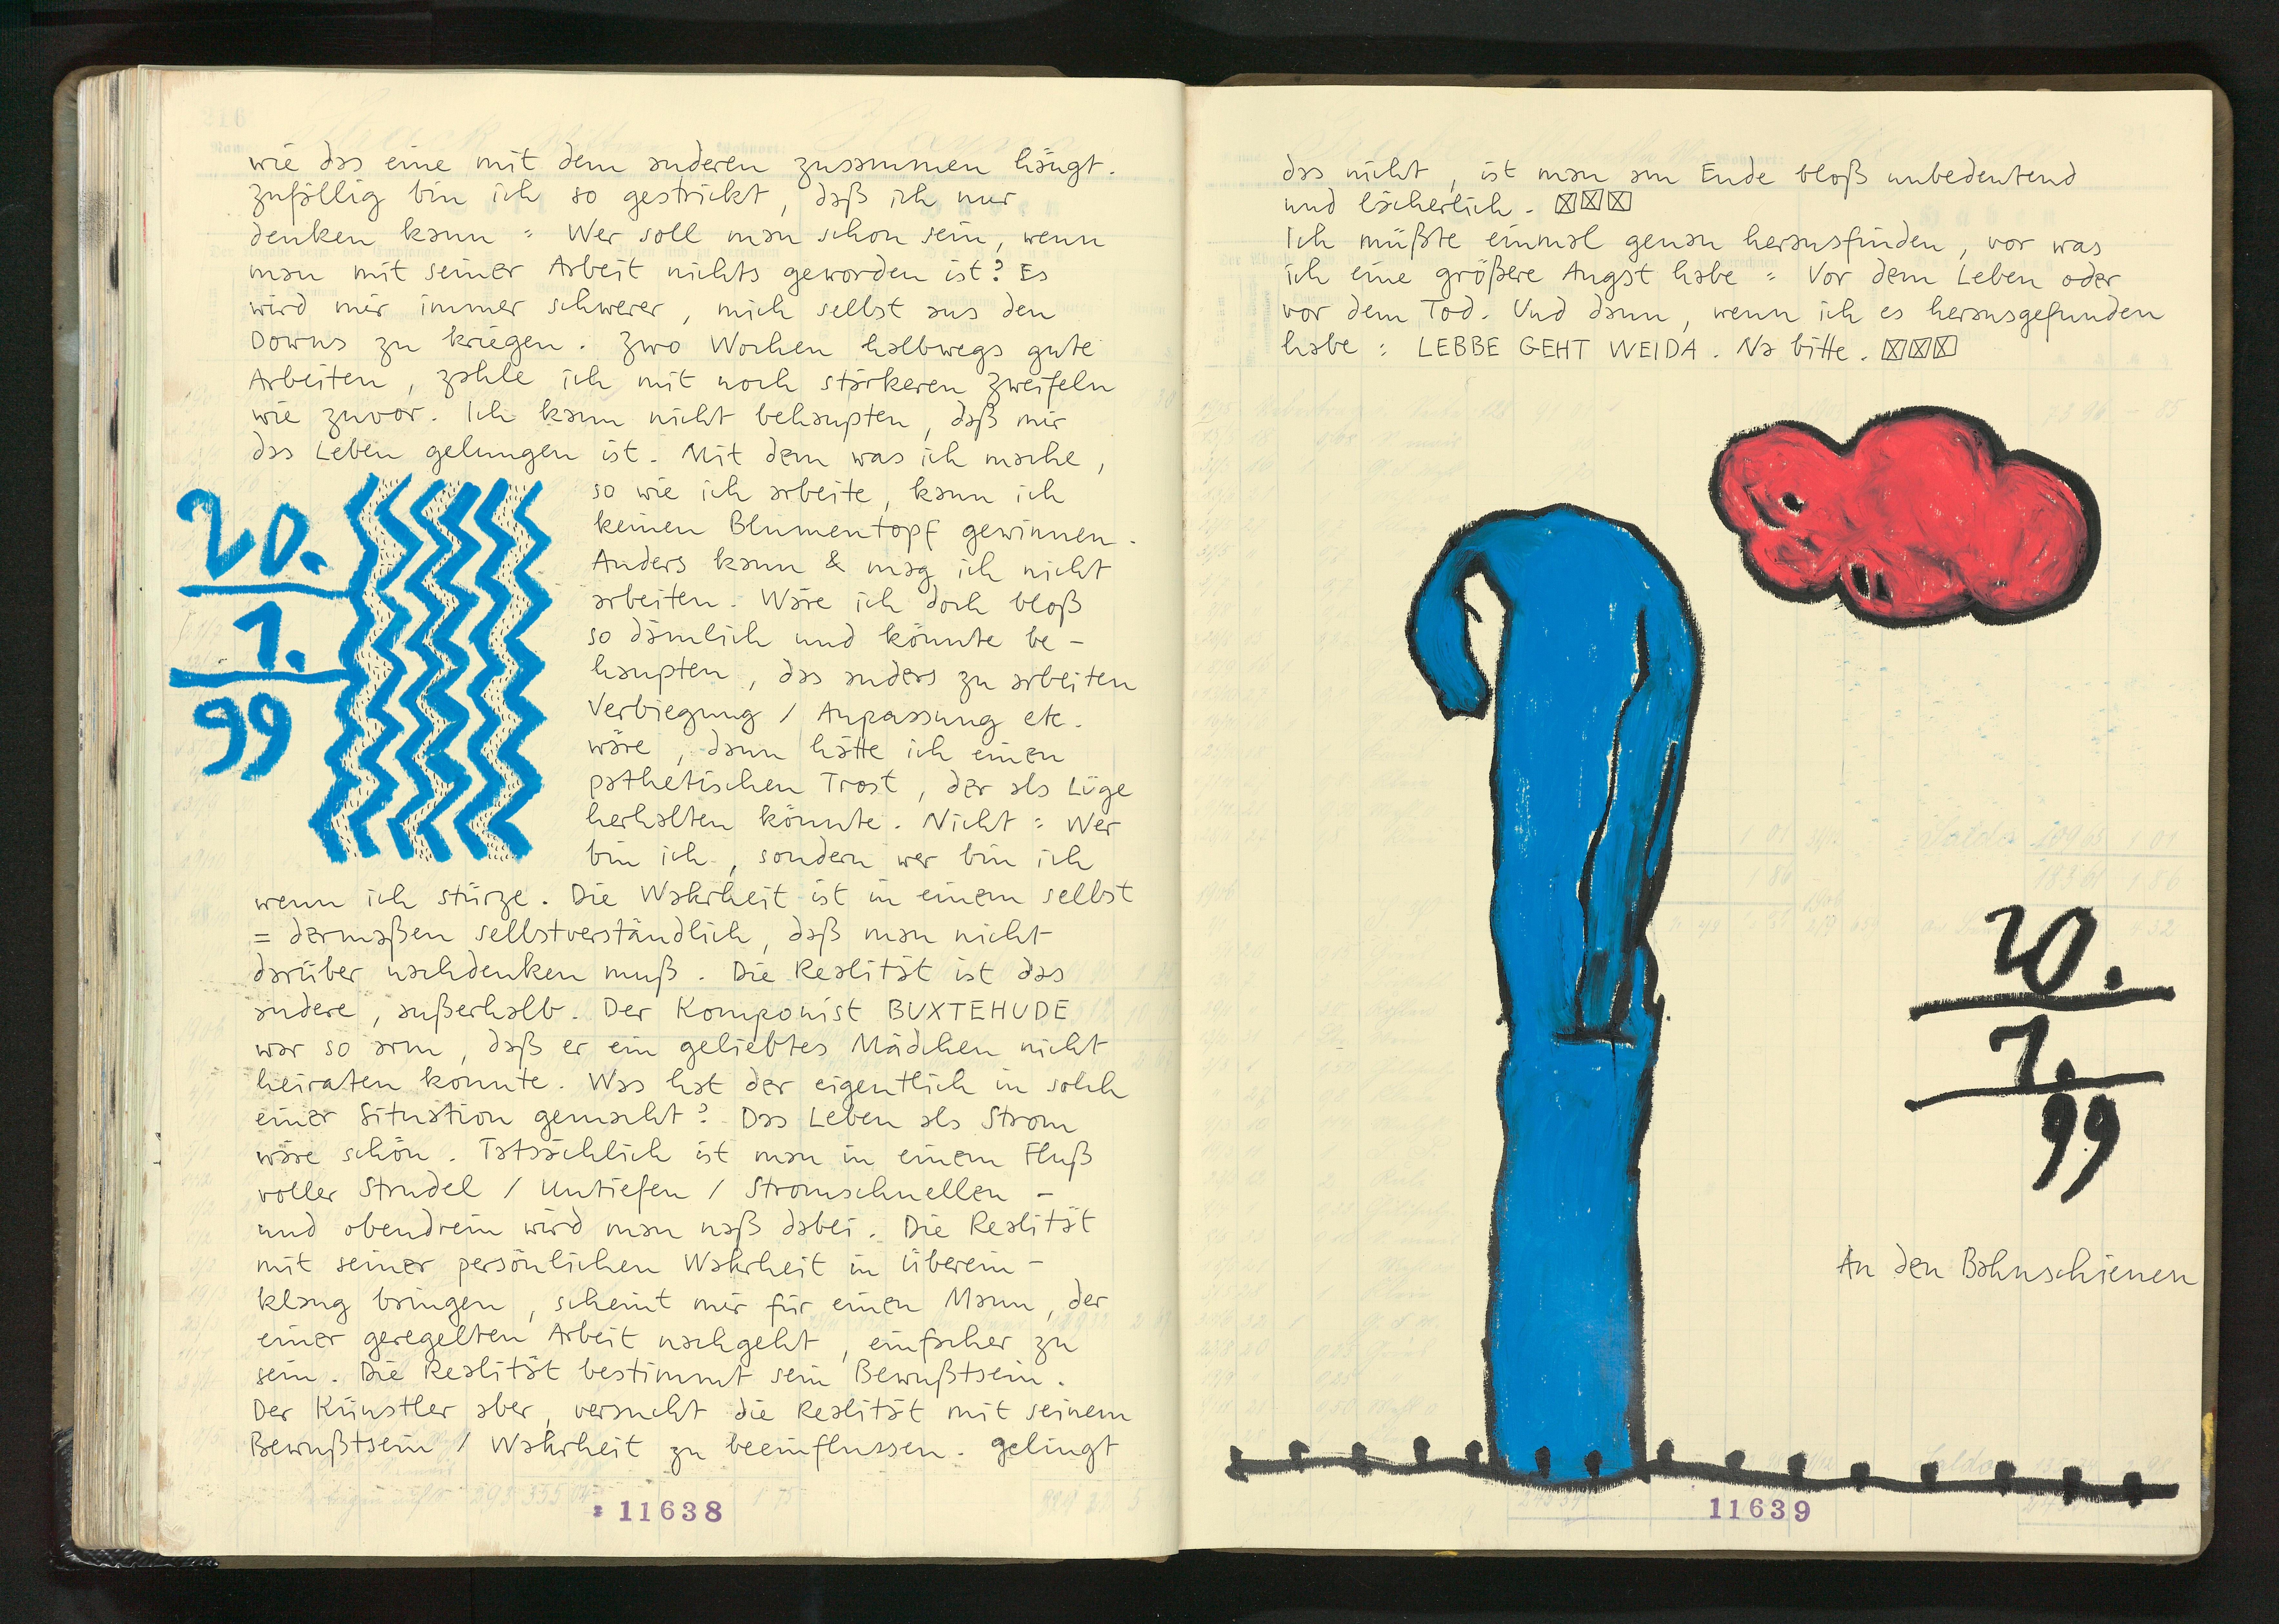 wie das eine mit dem anderen zusammen hängt.
Zufällig bin ich so gestrickt, daß ich nur
denken kann = Wer soll man schon sein, wenn
man mit seiner Arbeit nichts geworden ist? Es
wird mir immer schwerer, mich selbst aus den
Downs zu kriegen. Zwo Wochen halbwegs gute
Arbeiten, zahle ich mit noch stärkeren Zweifeln
wie zuvor. Ich kann nicht behaupten, daß mir
das Leben gelungen ist. Mit dem was ich mache,
so wie ich arbeite, kann ich
keinen Blumentopf gewinnen.
Anders kann & mag ich nicht
arbeiten. Wäre ich doch bloß
so dämlich und könnte be-
haupten, das anders zu arbeiten
Verbiegung / Anpassung etc.
wäre, dann hätte ich einen
pathetischen Trost, der als Lüge
herhalten könnte. Nicht = Wer
bin ich, sondern wer bin ich
20.
1.
99
wenn ich stürze. Die Wahrheit ist in einem selbst
= dermaßen selbstverständlich, daß man nicht
darüber nachdenken muß. Die Realität ist das
andere, außerhalb. Der Komponist BUXTEHUDE
war so arm, daß er ein geliebtes Mädchen nicht
heiraten konnte. Was hat der eigentlich in solch
einer Situation gemacht? Das Leben als Strom
wäre schön. Tatsächlich ist man in einem Fluß
voller Strudel / Untiefen / Stromschnellen -
und obendrein wird man naß dabei. Die Realität
mit seiner persönlichen Wahrheit in Überein-
klang bringen, scheint mir für einen Mann, der
einer geregelten Arbeit nachgeht, einfacher zu
sein. Die Realität bestimmt sein Bewußtsein.
Der Künstler aber, versucht die Realität mit seinem
Bewußtsein / Wahrheit zu beeinflussen. Gelingt
11638
das nicht, ist man am Ende bloß unbedeutend
und lächerlich. ☒☒☒
Ich müßte einmal genau herausfinden, vor was
ich eine größere Angst habe = Vor dem Leben oder
vor dem Tod. Und dann, wenn ich es herausgefunden
habe : LEBBE GEHT WEIDA. Na bitte. ☒☒☒
20.
1.
99
An den Bahnschienen
11639